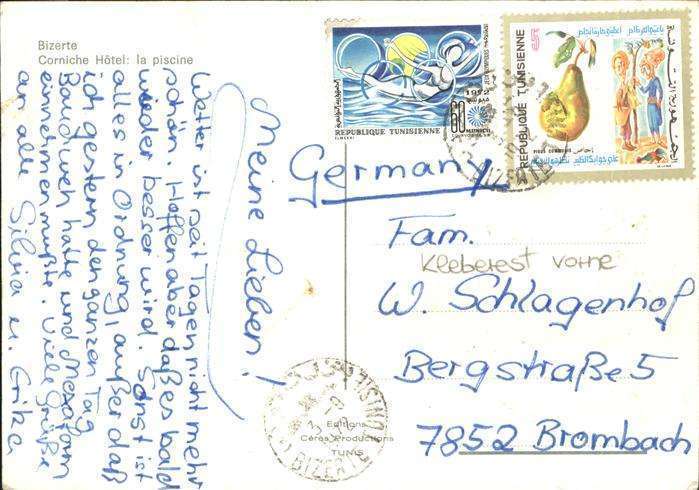 Bizerte
Corniche Hôtel: la piscine
Meine Lieben!
Wetter ist seit Tagen nicht mehr
schön. Hoffen aber daß es bald
wieder besser wird. Sonst ist
alles in Ordnung, außer daß
ich gestern den ganzen Tag
Bauchweh hatte und Mexaform
einnehmen mußte. Viele Grüße
an alle Silvia u. Erika
REPUBLIQUE TUNISIENNE
1972
60
MUNICH
REPUBLIQUE TUNISIENNE
5
PIRUS COMMUNIS
Germany
Fam.
Kleberest vorne
W. Schlagenhof
Bergstraße 5
7852 Brombach
Editions
Cérès Productions
TUNIS
BIZERTE